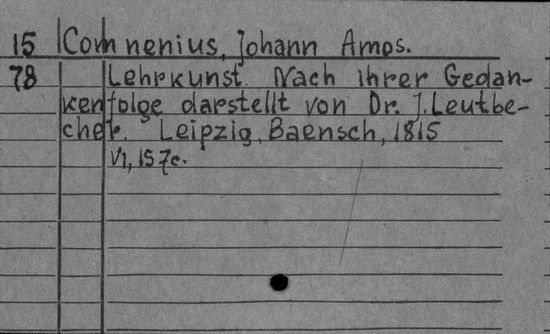 15 Comnenius, Johann Amos.
78 Lehrkunst. Nach ihrer Gedan-
kenfolge darstellt von Dr. J. Leutbe-
cher. Leipzig, Baensch, 1815
VI, 157c.